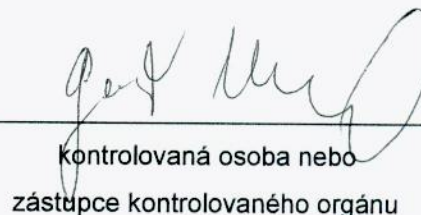 kontrolovaná osoba nebo
zástupce kontrolovaného orgánu